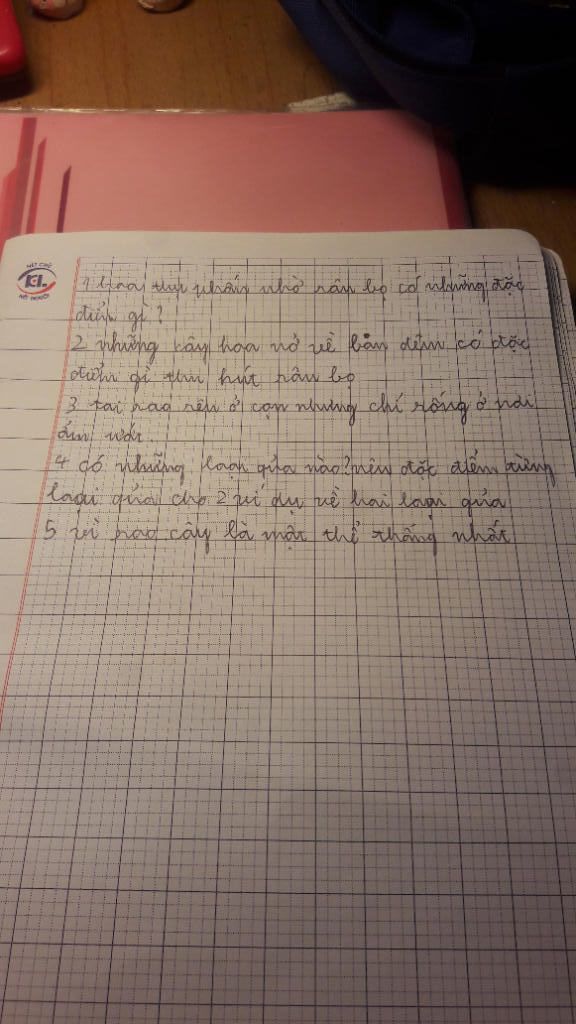 NÉT CHỮ
KL
NẾT NGƯỜI
1 hoa thụ phấn nhờ sân bọ có những đặc
điểm gì ?
2 những cây hoa nở về bản đêm có đặc
điểm gì thu hút sân bọ
3 tai sao rêu ở cạn nhưng chỉ sống ở nơi
ẩm ướt.
4 có những loại qủa nào? nêu đặc điểm từng
loại qủa cho 2 ví dụ về hai loại qủa
5 vì sao cây là một thể thống nhất